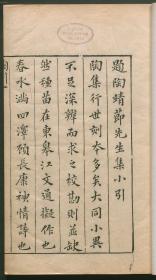 題陶靖節先生集小引
陶集行世刻本多矣大同小異
不足深辯而求之校勘則蓋缺
然種苗在東皋江文通擬作也
春水滿四澤顧長康神情詩也